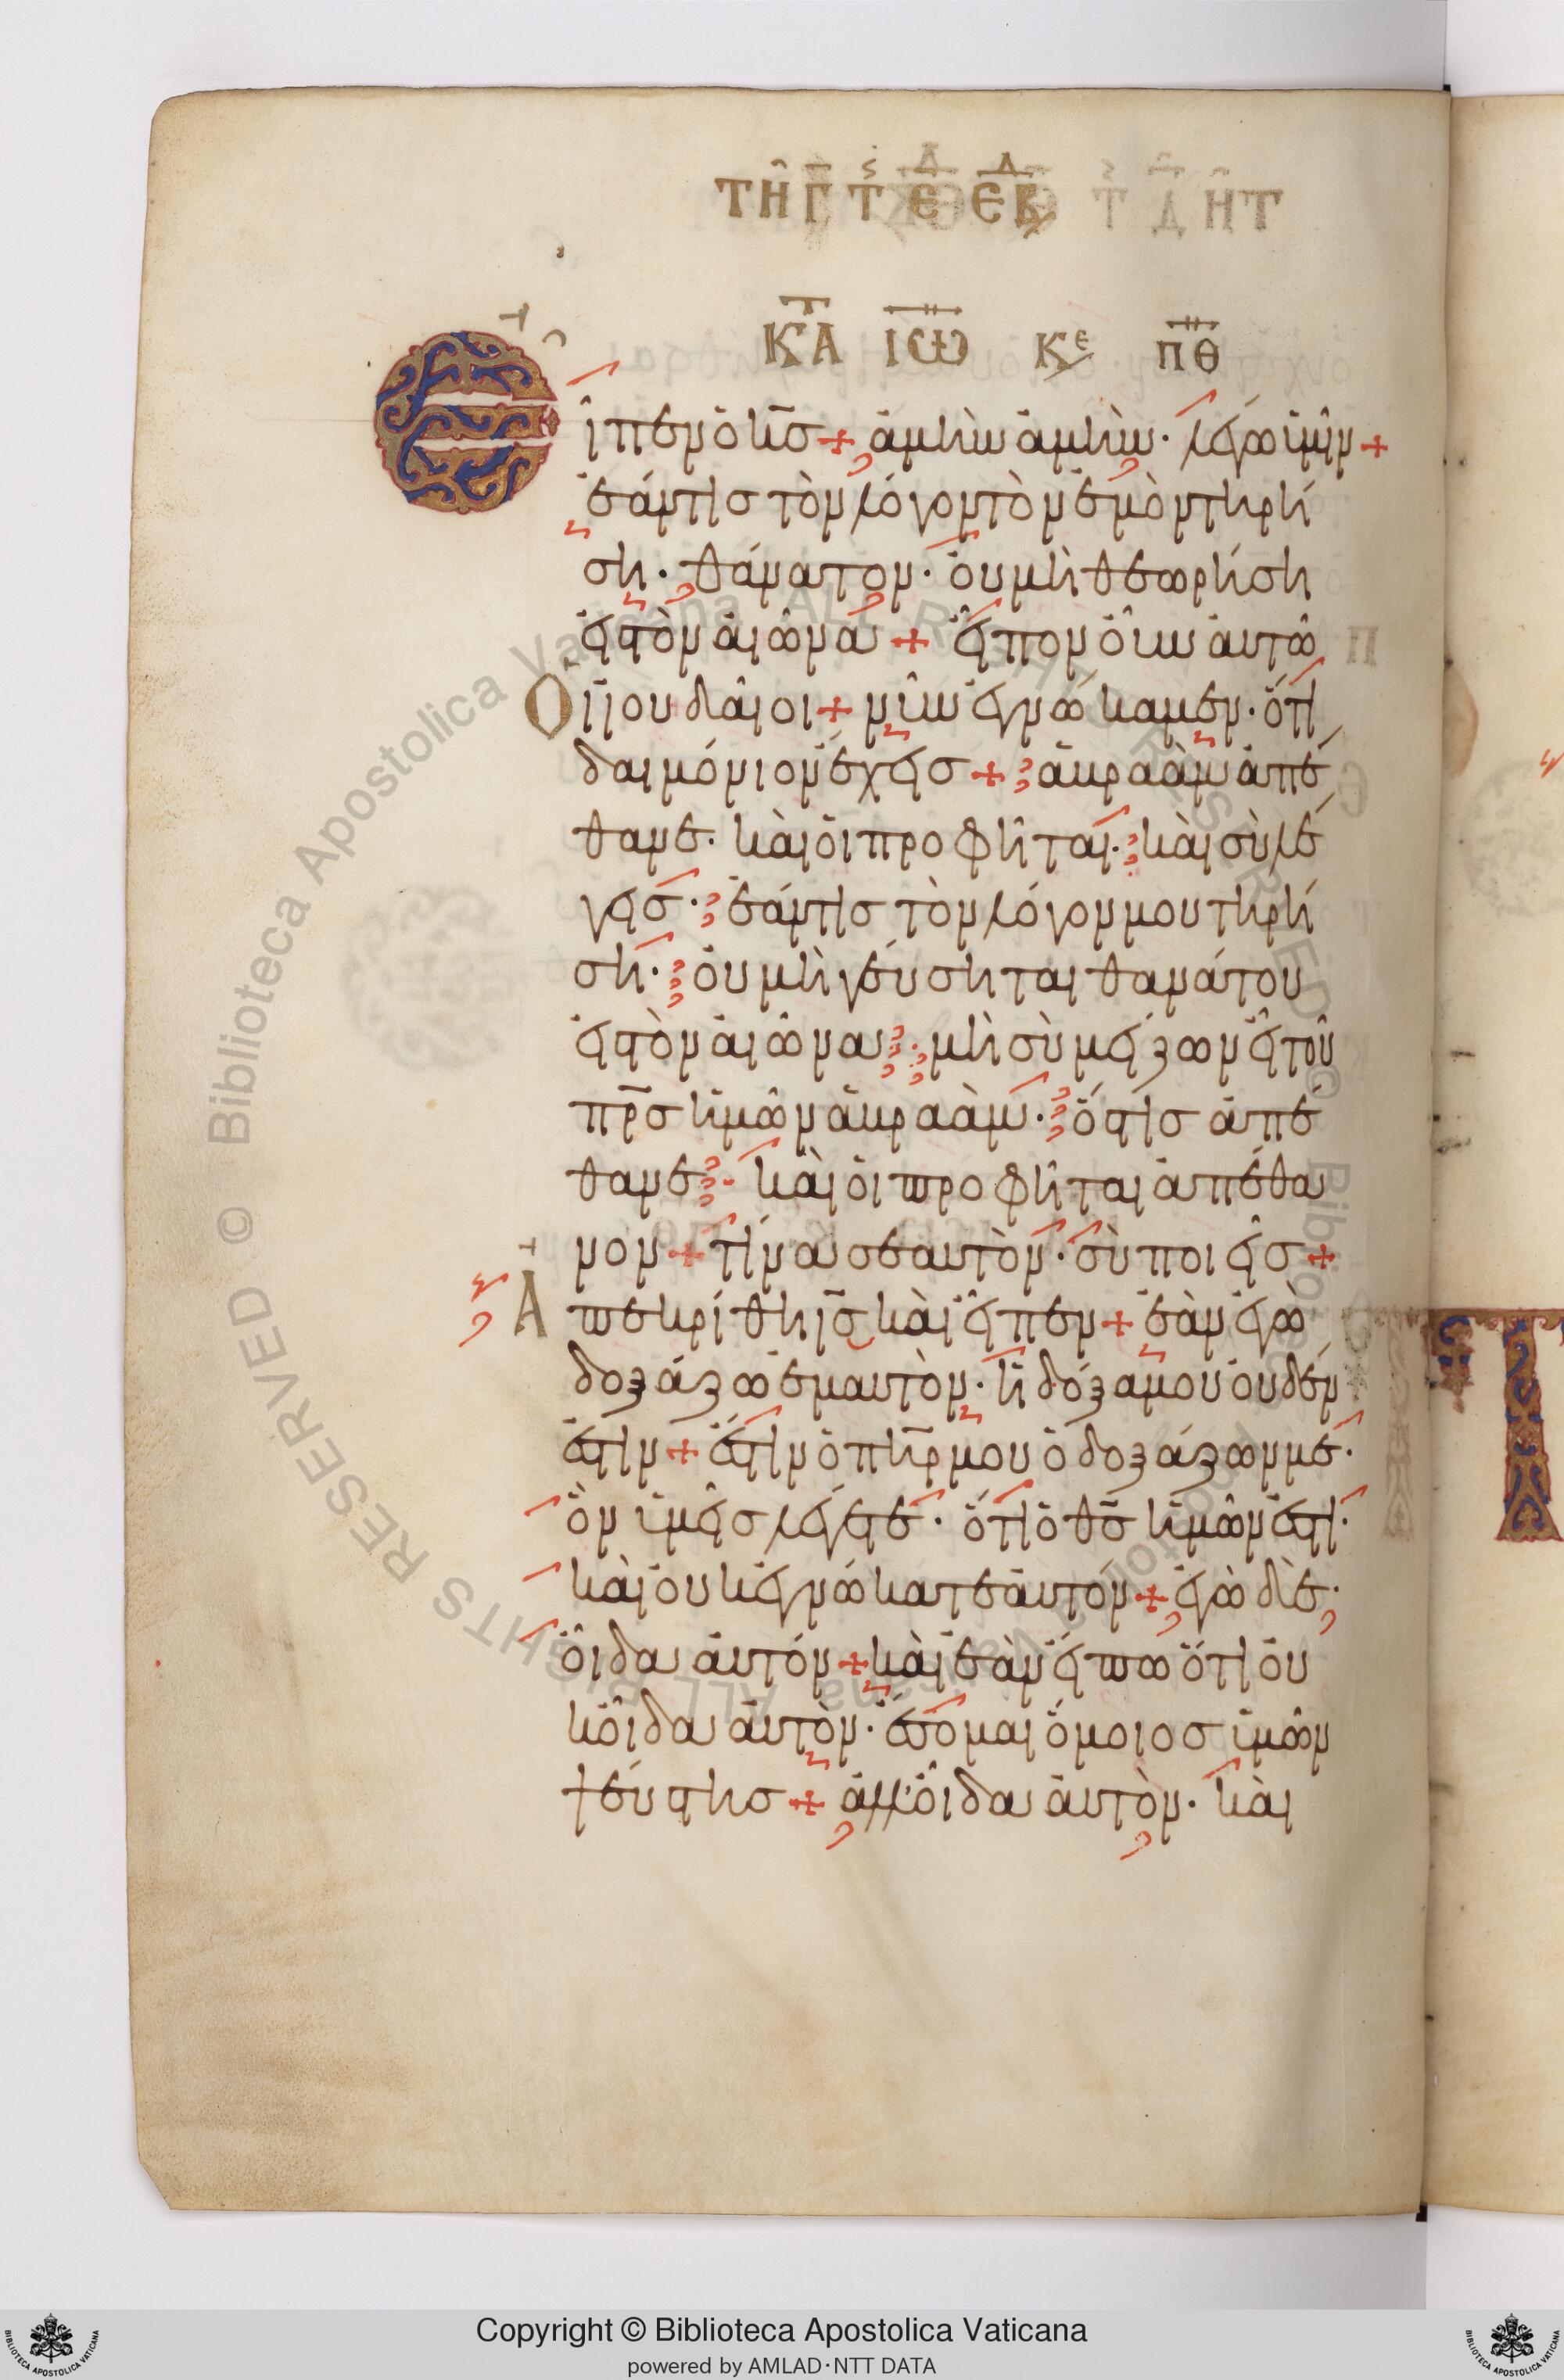 ΤΗ Γ Τ Ε ΕΒΔ
ΚΑΤ ΙΩ ΚΕ ΠΘ
Εἶπεν ὁ ισ + ἀμὴν ἀμὴν · λέγω ὑμῖν +
ἐάν τισ τὸν λόγον τὸν ἐμὸν τηρή
ση · θάνατον · οὐ μὴ θεωρήση
εἰς τὸν αἰῶνα + εἶπον οὖν αὐτῶ
Οἱ ἰουδαῖοι + νῦν ἐγνώκαμεν · ὅτι
δαιμόνιον ἔχεισ + ἀβραὰμ ἀπέ
θανε · καὶ οἱ προφῆται · καὶ σὺ λέ
γεισ · ἐάν τισ τὸν λόγον μου τηρή
ση · οὐ μὴ γεύσηται θανάτου
εἰς τὸν αἰῶνα · μὴ σὺ μείζων εἶ τοῦ
πρσ ἡμῶν ἀβραάμ · ὅστισ ἀπέ
θανε · καὶ οἱ προφῆται ἀπέθα
νον + τίνα σεαυτὸν · σὺ ποιεῖσ +
Ἀπεκρίθη ισ καὶ εἶπεν + ἐὰν ἐγὼ
δοξάζω ἐμαυτὸν · ἡ δόξα μου οὐδέν
ἐστιν + ἔστιν ὁ πηρ μου ὁ δοξάζων με ·
ὃν ὑμεῖσ λέγετε · ὅτι ὁ θσ ἡμῶν ἐστι ·
καὶ οὐκ ἐγνώκατε αὐτόν + ἐγὼ δὲ
οἶδα αὐτόν + καὶ ἐὰν εἴπω ὅτι οὐ
κ οἶδα αὐτὸν · ἔσομαι ὅμοιοσ ὑμῶν
ψεύστησ + ἀλλ' οἶδα αὐτὸν · καὶ
Copyright © Biblioteca Apostolica Vaticana
powered by AMLAD·NTT DATA